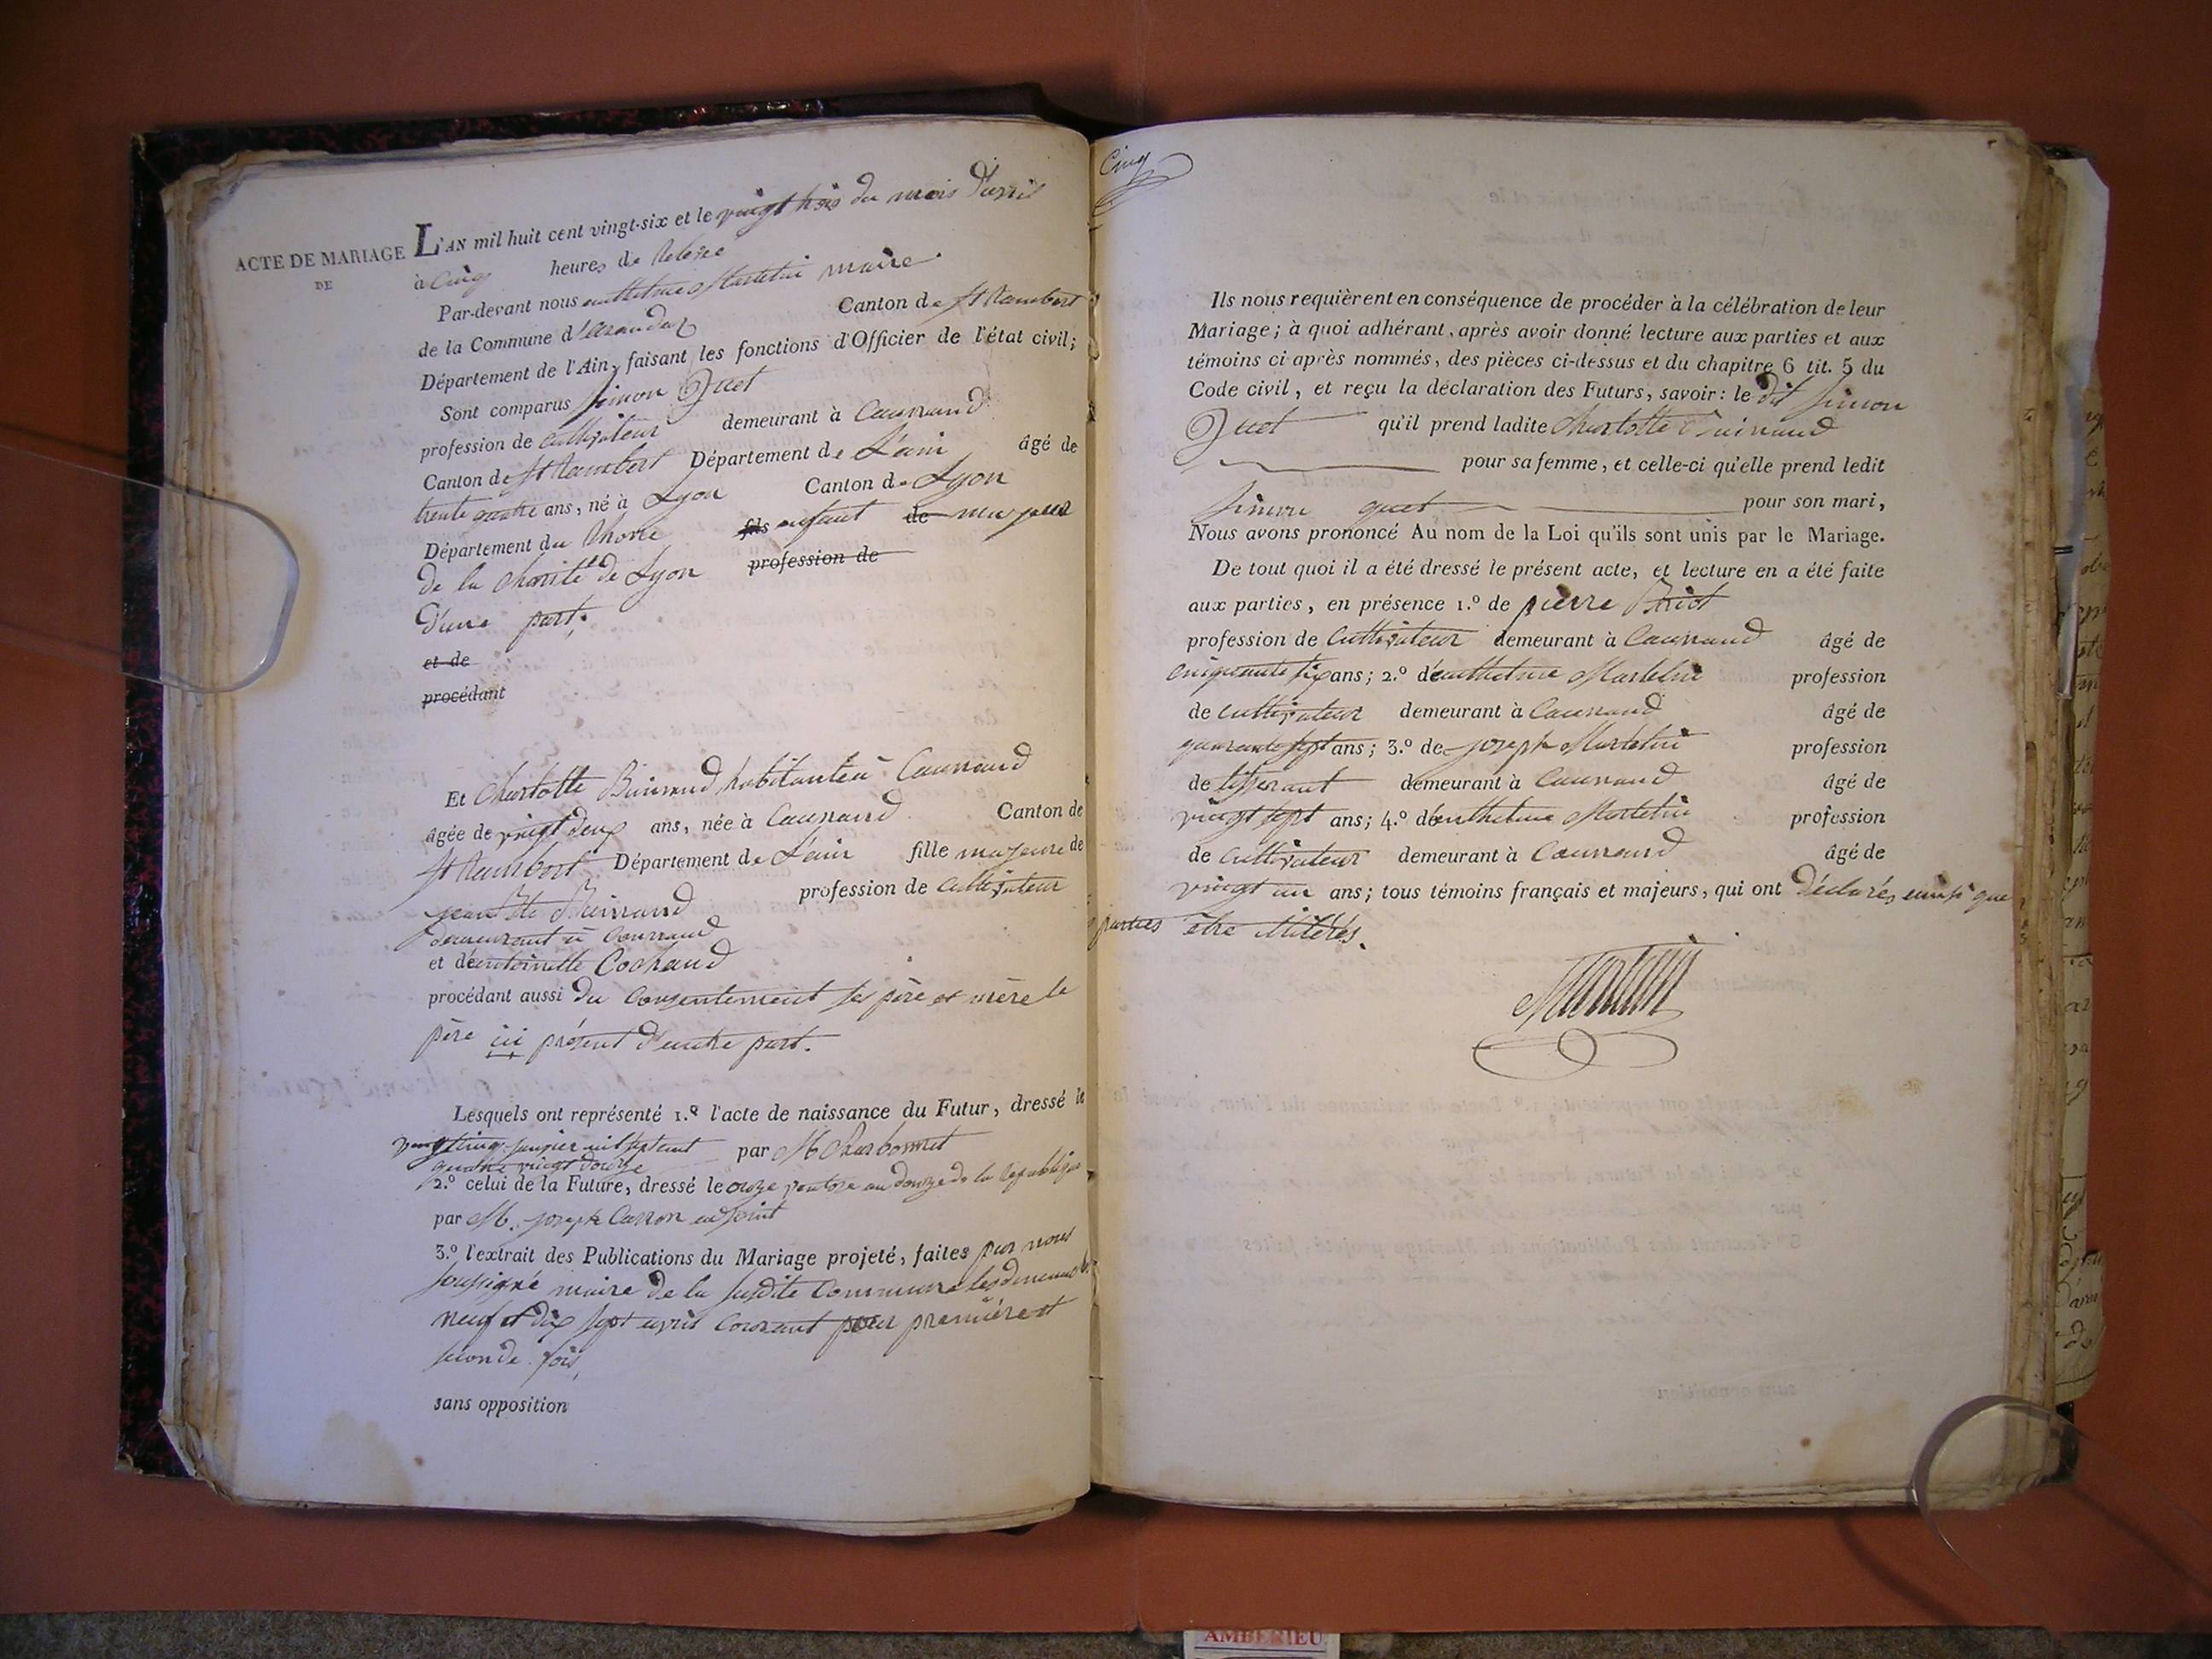 ACTE DE MARIAGE
DE
L'AN mil huit cent vingt-six et le vingt trois du mois d'avril
à Cinq heures de Relevée
Par-devant nous anthelme Martelin maire
de la Commune d'arandas Canton de St Rambert
Département de l'Ain, faisant les fonctions d'Officier de l'état civil;
Sont comparus Simon Quet
profession de cultivateur demeurant à Caunand
Canton de St Rambert Département de L'ain âgé de
trente quatre ans, né à Lyon Canton de Lyon
Département du Rhone fils enfant de majeur
de la charité de Lyon profession de
d'une part;
et de
procédant
Et Charlotte habitante à Caunand
âgée de vingt deux ans, née à Caunand Canton de
St Rambert Département de L'ain fille majeure de
jean Bte profession de cultivateur
demeurant à Counand
et d'antoinette Cochaud
procédant aussi du consentement ses père et mère le
père ici présent d'autre part.
Lesquels ont représenté 1.º l'acte de naissance du Futur, dressé le
vingt cinq janvier mil sept cent par M
quatre vingt douze
2.º celui de la Future, dressé le onze ventose an douze de la republique
par M. joseph Carron adjoint
3.º l'extrait des Publications du Mariage projeté, faites par nous
soussigné maire de la susdite Commune les dimanches
neuf et dix sept avril courant pour première et
seconde fois,
sans opposition
Cinq
Ils nous requièrent en conséquence de procéder à la célébration de leur
Mariage; à quoi adhérant, après avoir donné lecture aux parties et aux
témoins ci après nommés, des pièces ci-dessus et du chapitre 6 tit. 5 du
Code civil, et reçu la déclaration des Futurs, savoir: le dit Simon
Quet qu'il prend ladite Charlotte
pour sa femme, et celle-ci qu'elle prend ledit
Simon quet pour son mari,
Nous avons prononcé Au nom de la Loi qu'ils sont unis par le Mariage.
De tout quoi il a été dressé le présent acte, et lecture en a été faite
aux parties, en présence 1.º de pierre
profession de Cultivateur demeurant à Caunand âgé de
cinquante six ans; 2.º d'anthelme Martelin profession
de cultivateur demeurant à Caunand âgé de
quarante sept ans; 3.º de joseph Martelin profession
de tisserant demeurant à Caunand âgé de
vingt sept ans; 4.º d'anthelme Martelin profession
de Cultivateur demeurant à Counand âgé de
vingt un ans; tous témoins français et majeurs, qui ont déclarés ainsi que
parties être illitérés.
Martelin
AMBERIEU